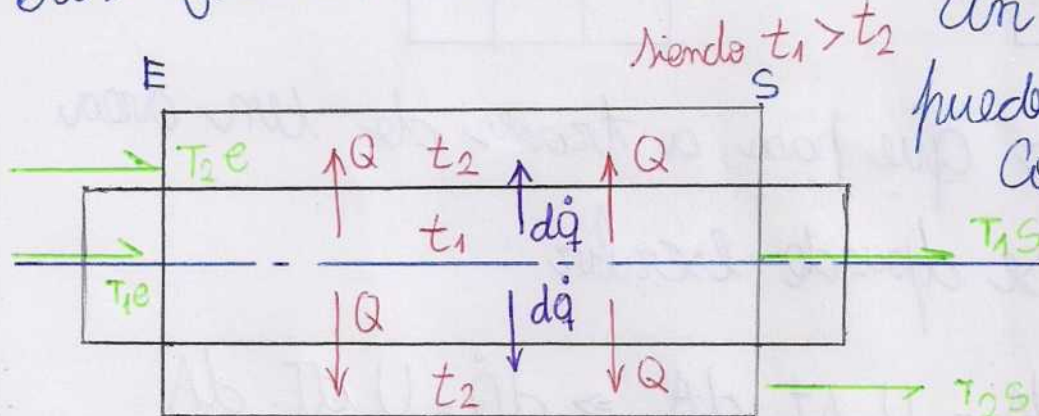 un
siendo t₁ > t₂
puede
E
S
T₂e
Q t₂ Q
dq̇
t₁
T₁s
T₁e
dq̇
Q
Q
t₂
T₂s